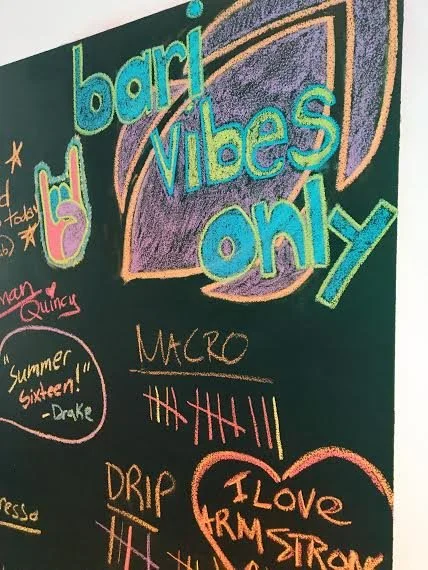 bari
vibes
only
today
Quincy
"Summer
Sixteen!"
-Drake
MACRO
DRIP
I LOVE
ARMSTRONG